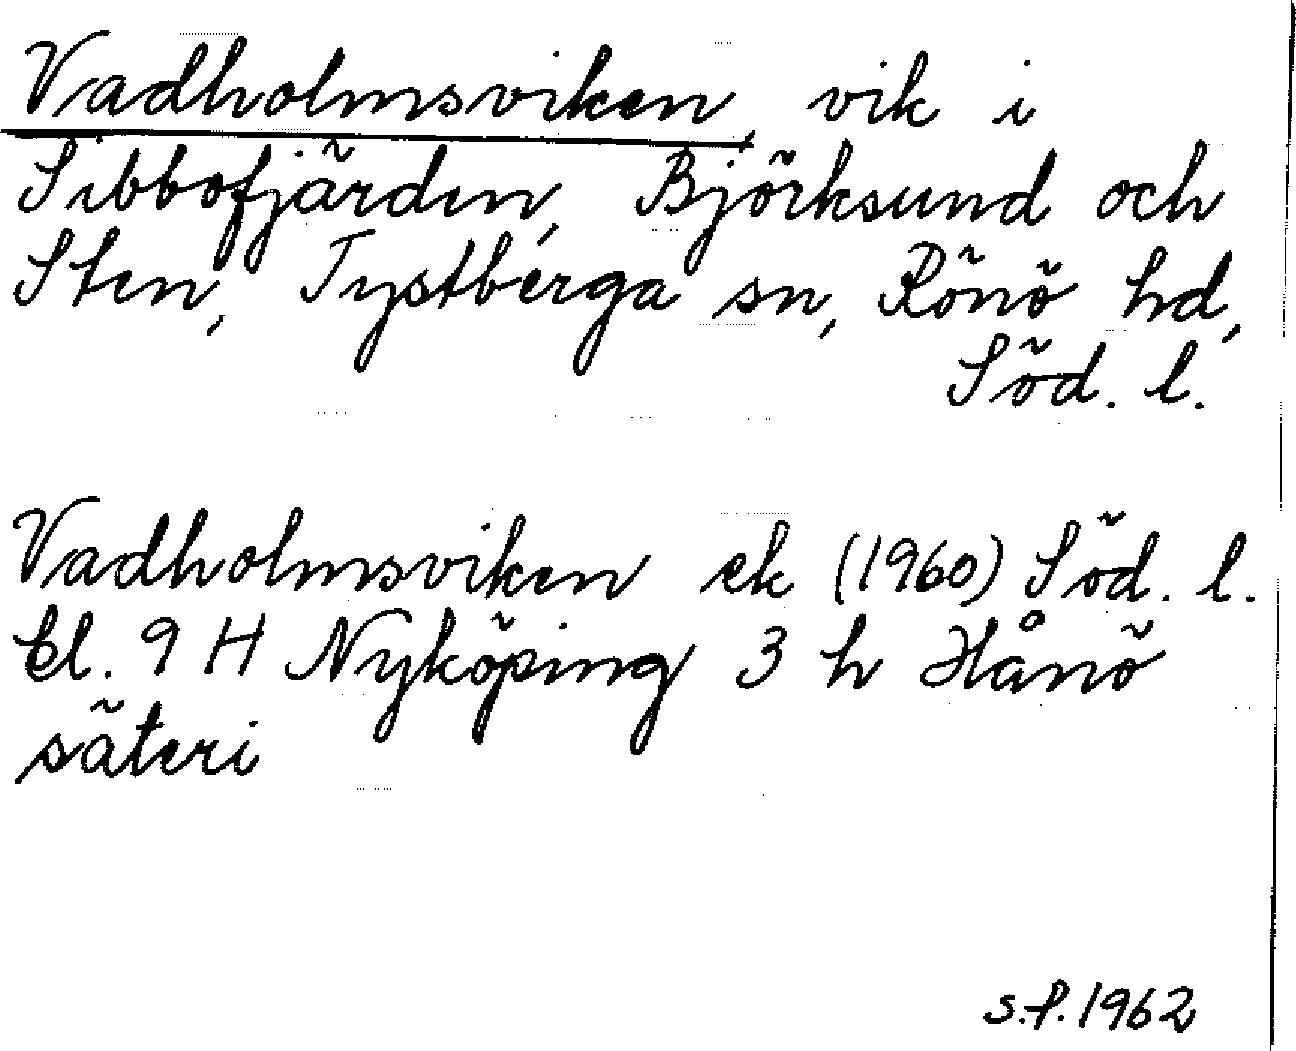 Vadholmsviken, vik i
Sibbofjärden, Björksund och
Sten, Tystberga sn, Rönö hd,
Söd. l.
Vadholmsviken ek (1960) Söd. l.
bl. 9 H Nyköping 3 h Hånö
säteri
s.f. 1962